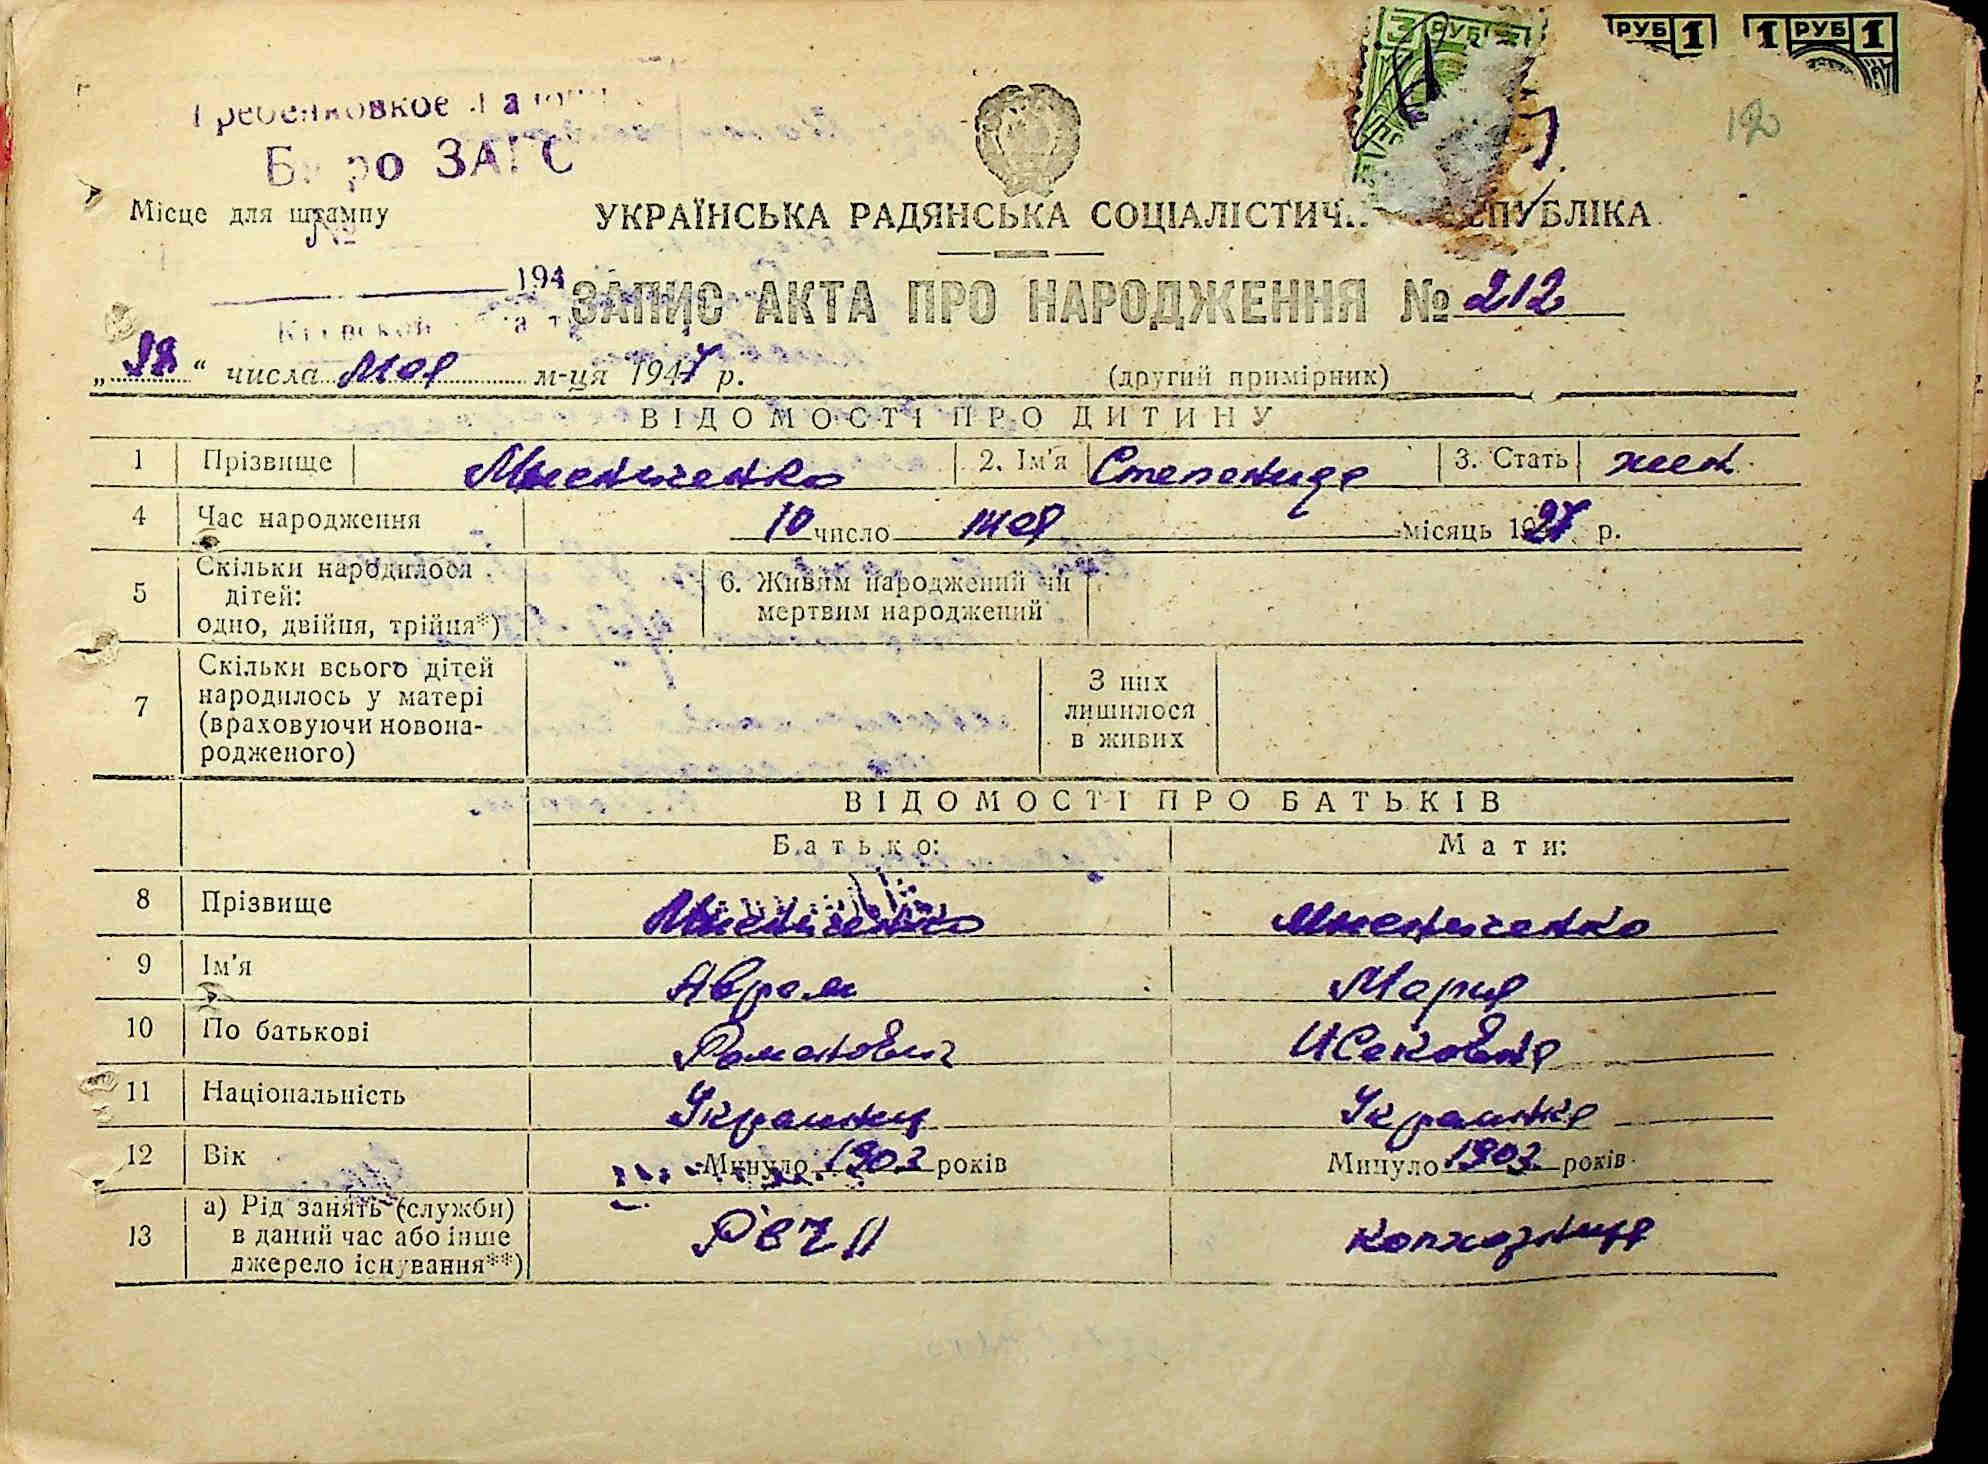 3 РУБ
РУБ 1
1 РУБ 1
120
Бюро ЗАГС
Місце для штампу
№
194
УКРАЇНСЬКА РАДЯНСЬКА СОЦІАЛІСТИЧ.. СПУБЛІКА
ЗАПИС АКТА ПРО НАРОДЖЕННЯ № 212
„ “ числа Мая м-ця 1947 р. (другий примірник)
ВІДОМОСТІ ПРО ДИТИНУ
1 Прізвище 2. Ім'я Степанида 3. Стать жен.
4 Час народження 10 число мая місяць 1927 р.
5 Скільки народилося дітей: одно, двійня, трійня*) 6. Живим народжений чи мертвим народжений
7 Скільки всього дітей народилось у матері (враховуючи новонародженого) З них лишилося в живих
ВІДОМОСТІ ПРО БАТЬКІВ
Батько: Мати:
8 Прізвище
9 Ім'я Аврам Мария
10 По батькові Романович Исаковна
11 Національність Украинец Украинка
12 Вік Минуло 1902 років Минуло 1903 років
13 а) Рід занять (служби) в даний час або інше джерело існування**) колхозница